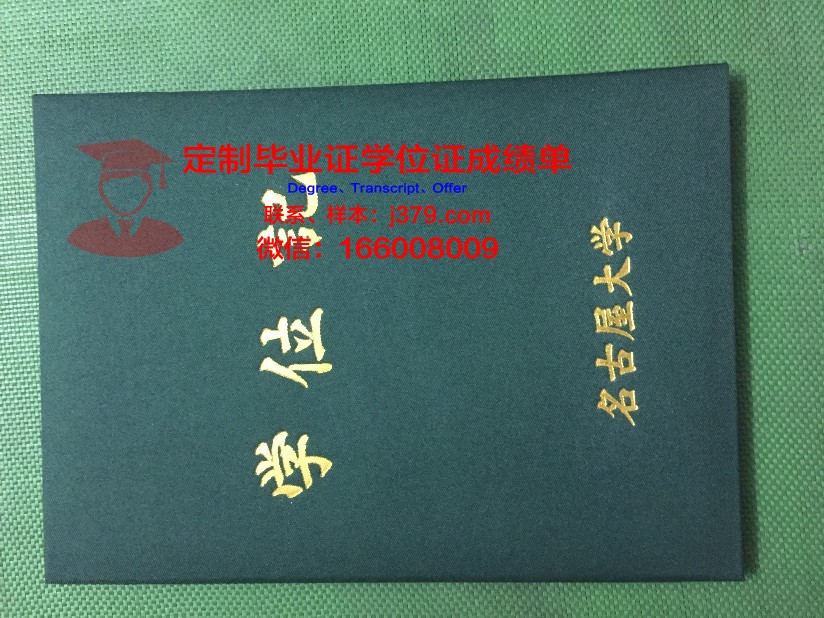 定制毕业证学位证成绩单
Degree、Transcript、Offer
联系、样本：j379.com
微信：166008009
学位記
名古屋大学